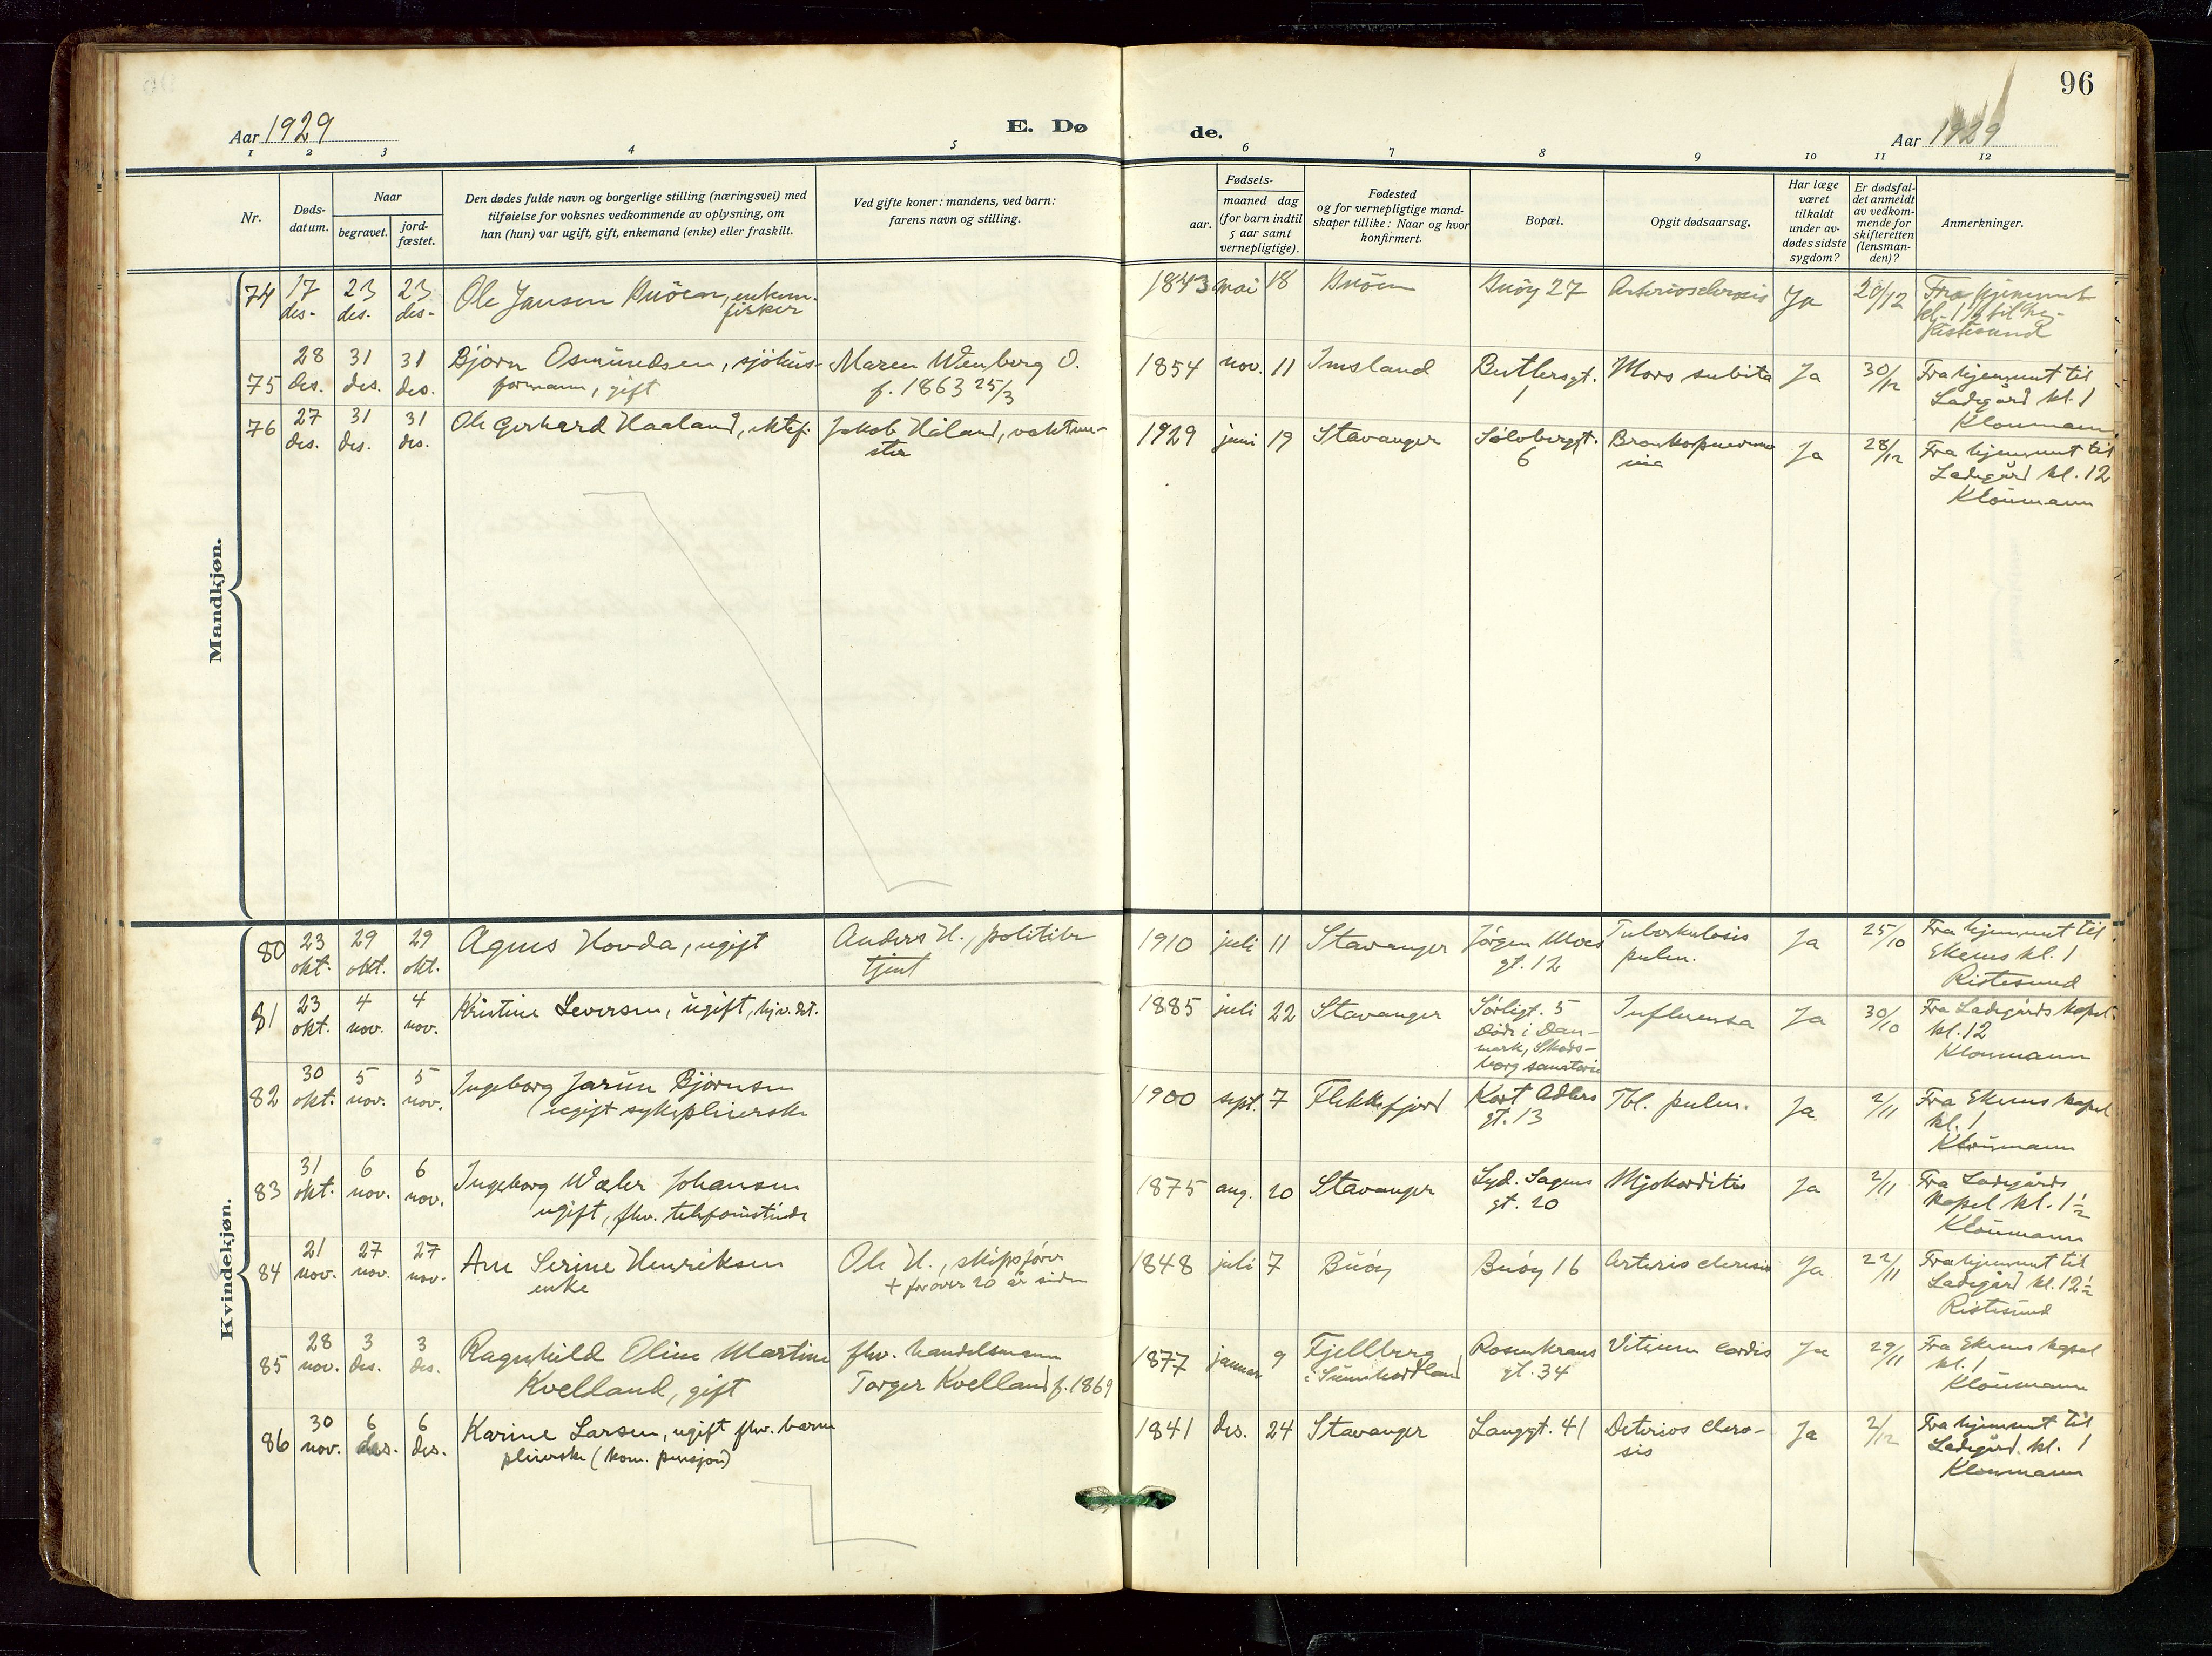 96
Aar 1929
E. Dø
de.
Aar 1929
1 2 3 4 5 6 7 8 9 10 11 12
Nr.
Døds-
datum.
Naar
begravet.
jord-
fæstet.
Den dødes fulde navn og borgerlige stilling (næringsvei) med
tilføielse for voksnes vedkommende av oplysning, om
han (hun) var ugift, gift, enkemand (enke) eller fraskilt.
Ved gifte koner: mandens, ved barn:
farens navn og stilling.
Fødsels-
aar.
maaned dag
(for barn indtil
5 aar samt
vernepligtige).
Fødested
og for vernepligtige mand-
skaper tillike: Naar og hvor
konfirmert.
Bopæl.
Opgit dødsaarsag.
Har læge
været
tilkaldt
under av-
dødes sidste
sygdom?
Er dødsfal-
det anmeldt
av vedkom-
mende for
skifteretten
(lensman-
den)?
Anmerkninger.
Mandkjøn.
74 17 des. 23 des. 23 des. Ole Jansen Buöen, enkem.
fisker
1843 mai 18 Buöen Buöy 27 Arteriosclerosis Ja 20/12 Fra hjemmet
kl. 1½ til
Ristesund
75 28 des. 31 des. 31 des. Bjørn Osmundsen, sjöhus-
formann, gift
Maren Wenberg O.
f. 1863 25/3
1854 nov. 11 Imsland Butlersgt.
1
Mors subita Ja 30/12 Fra hjemmet til
Ladegård kl. 1
Kloumann
76 27 des. 31 des. 31 des. Ole Gerhard Haaland, ektef.
Jakob Håland, vaktme-
ster
1929 juni 19 Stavanger Sølvbergt.
6
Bronkopneumo
nia
Ja 28/12 Fra hjemmet til
Ladegård kl. 12
Kloumann
Kvindekjøn.
80 23 okt. 29 okt. 29 okt. Agnes Hovda, ugift
Anders H., politibe
tjent
1910 juli 11 Stavanger Jörgen Moes
gt. 12
Tuberkulosis
pulm.
Ja 25/10 Fra hjemmet til
Ekenes kl. 1
Ristesund
81 23 okt. 4 nov. 4 nov. Kristine Seversen, ugift, hjv. dt.
1885 juli 22 Stavanger Sörligt. 5
Död i Dan-
mark, Skods-
borg sanatorie
Influensa Ja 30/10 Fra Ladegårds kapel
kl. 12
Kloumann
82 30 okt. 5 nov. 5 nov. Ingeborg Jarun Bjørnsen
ugift sykepleierske
1900 sept. 7 Flekkefjord Kort Adlers
gt. 13
Tbl. pulm. Ja 2/11 Fra Ekenes kapel
kl. 1
Kloumann
83 31 okt. 6 nov. 6 nov. Ingeborg Wæler Johansen
ugift, fhv. telefonistinde
1875 aug. 20 Stavanger Lyd. Sagens
gt. 20
Myokarditis Ja 2/11 Fra Ladegårds
kapel kl. 1½
Kloumann
84 21 nov. 27 nov. 27 nov. Ane Serine Henriksen
enke
Ole H., skipsförer
+ for over 20 år siden
1848 juli 7 Buöy Buöy 16 Arterios clerosis Ja 22/11 Fra hjemmet til
Ladegård kl. 12½
Ristesund
85 28 nov. 3 des. 3 des. Ragnhild Oline Martine
Kvelland, gift
fhv. handelsmann
Torger Kvelland f. 1869
1877 januar 9 Fjellberg
i Sunnhordland
Rosenkrans
gt. 34
Vitium cordis Ja 29/11 Fra Ekenes kapel
kl. 1
Kloumann
86 30 nov. 6 des. 6 des. Karine Larsen, ugift fhv. barne
pleierske (kom. pensjon)
1841 des. 24 Stavanger Langgt. 41 Deterios clero-
sis
Ja 2/12 Fra hjemmet til
Ladegård. kl. 1
Kloumann